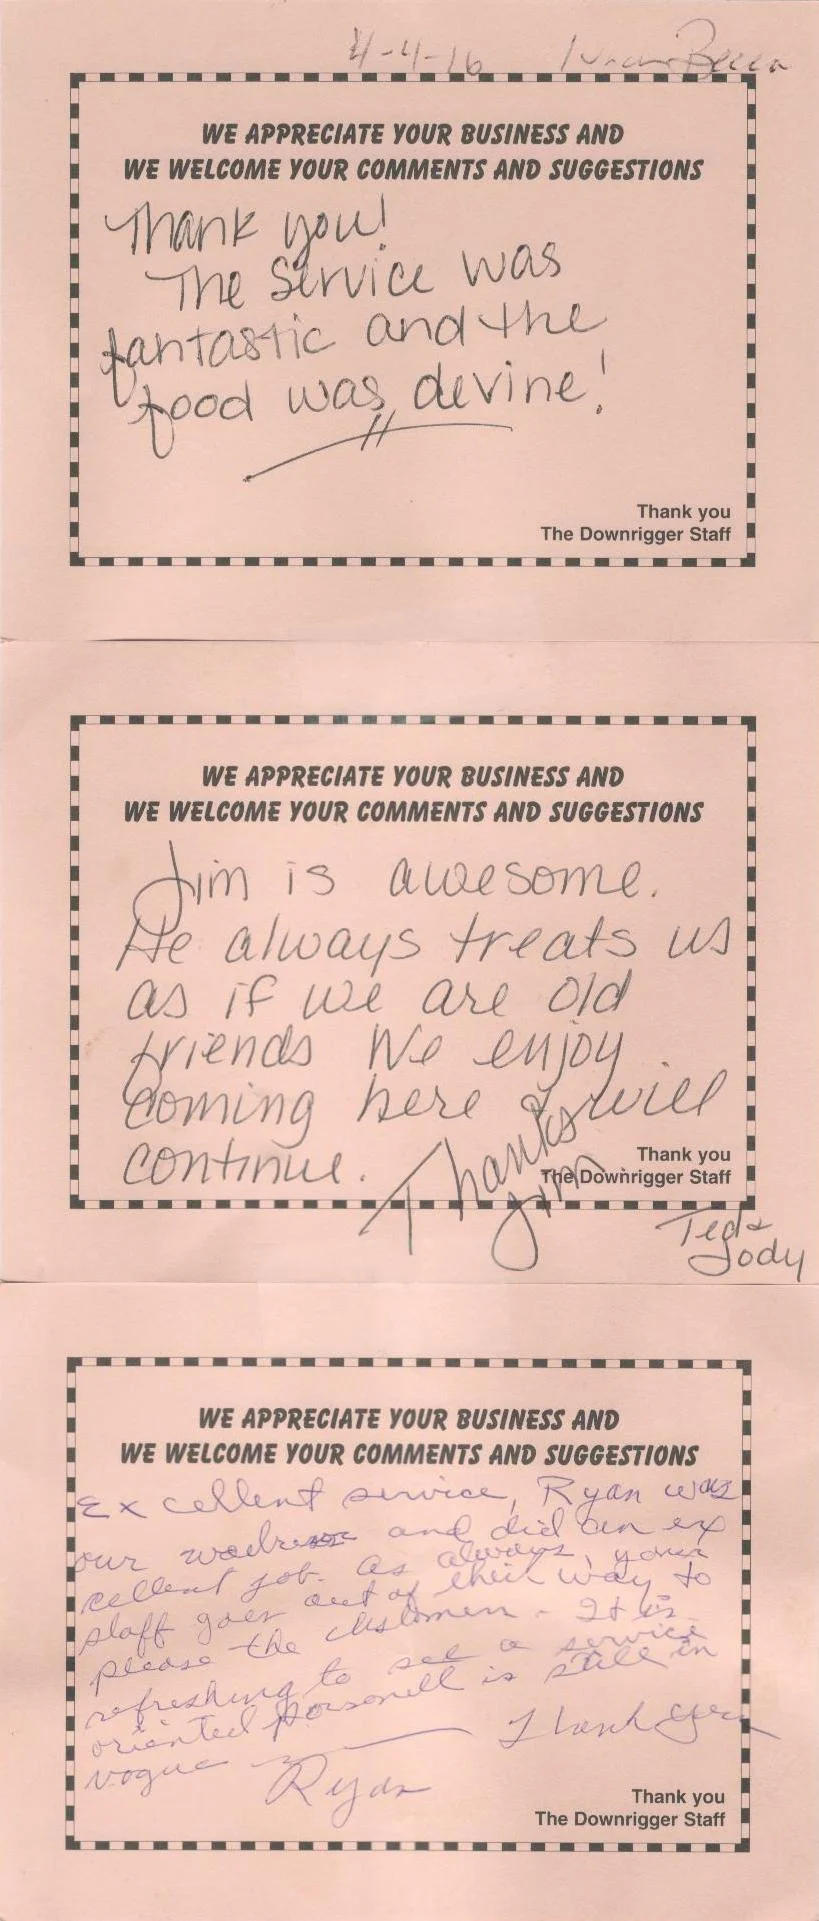 4-4-16 Becca
WE APPRECIATE YOUR BUSINESS AND
WE WELCOME YOUR COMMENTS AND SUGGESTIONS
Thank you!
The service was
fantastic and the
food was devine!
Thank you
The Downrigger Staff
WE APPRECIATE YOUR BUSINESS AND
WE WELCOME YOUR COMMENTS AND SUGGESTIONS
Jim is awesome.
He always treats us
as if we are old
friends We enjoy
coming here & will
continue.
Thanks
Jim
Thank you
The Downrigger Staff
Ted &
Jody
WE APPRECIATE YOUR BUSINESS AND
WE WELCOME YOUR COMMENTS AND SUGGESTIONS
Excellent service, Ryan was
our and did an ex
cellent job. as always, your
staff goes out of their way to
please the customer - It is
refreshing to see a service
oriented personell is still in
vogue - Thank you
Ryan
Thank you
The Downrigger Staff